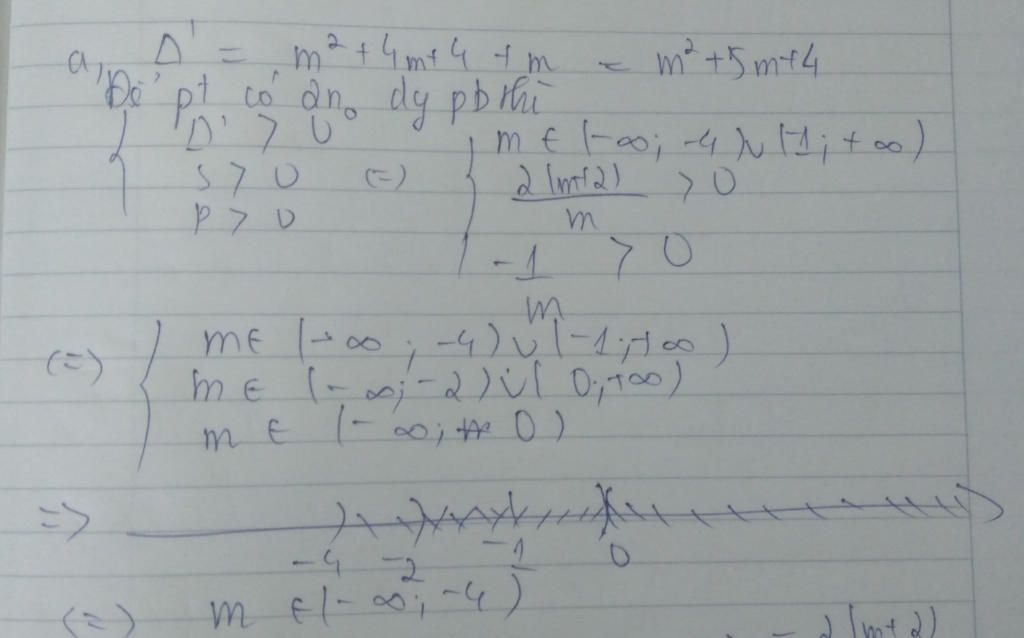 a, Δ' = m² + 4m + 4 + m = m² + 5m + 4
Để pt có 2 n₀ dg pb thì
{ Δ' > 0
S > 0
P > 0
(=)
{ m ∈ (-∞; -4) ∪ (-1; +∞)
2(m+2)/m > 0
-1/m > 0
(=) { m ∈ (-∞; -4) ∪ (-1; +∞)
m ∈ (-∞; -2) ∪ (0; +∞)
m ∈ (-∞; 0)
=>
-4 -2 -1 0
(=) m ∈ (-∞; -4)
= 2(m+2)